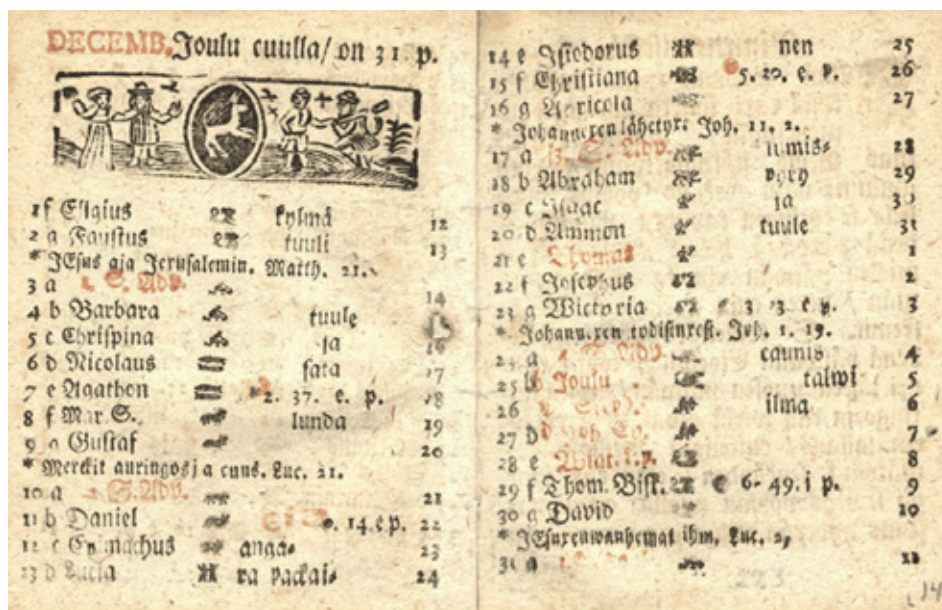 DECEMB. Joulu cuulla/ on 31. p.
1 f Eligius kylmä 12
2 g Faustus tuuli 13
* JEsus aja Jerusalemin. Matth. 21.
3 a 1. S. Adv. 14
4 b Barbara tuule
5 c Chrispina ja 16
6 d Nicolaus sata 17
7 e Agathon 2. 37. e. p. 18
8 f Mar. S. lunda 19
9 g Gustaf 20
* Merckit auringos ja cuus. Luc. 21.
10 a 2. S. Adv. 21
11 b Daniel 0. 14. e p. 22
12 c Epimachus anga= 23
13 d Lucia ra packai= 24
14 e Isiodorus nen 25
15 f Christiana 5. 20. e. p. 26
16 g Agricola 27
* Johannexen lähetyx. Joh. 11, 2.
17 a 3. S. Adv. lumis= 28
18 b Abraham pyry 29
19 c Isaac ja 30
20 d Ammon tuule 31
21 e Thomas 1
22 f Josephus 2
23 g Wictoria 3. 3. e. p. 3
* Johannexen todistuxest. Joh. 1. 19.
a 4. S. Adv. caunis 4
25 b Joulu talwi 5
26 ilma 6
27 d Joh. Ev. 7
28 e Wiat. l. p. 8
29 f Thom. Bisk. 6. 49. i p. 9
30 g David 10
* JEsuxen wanhemat ihm, Luc. 2,
31 a